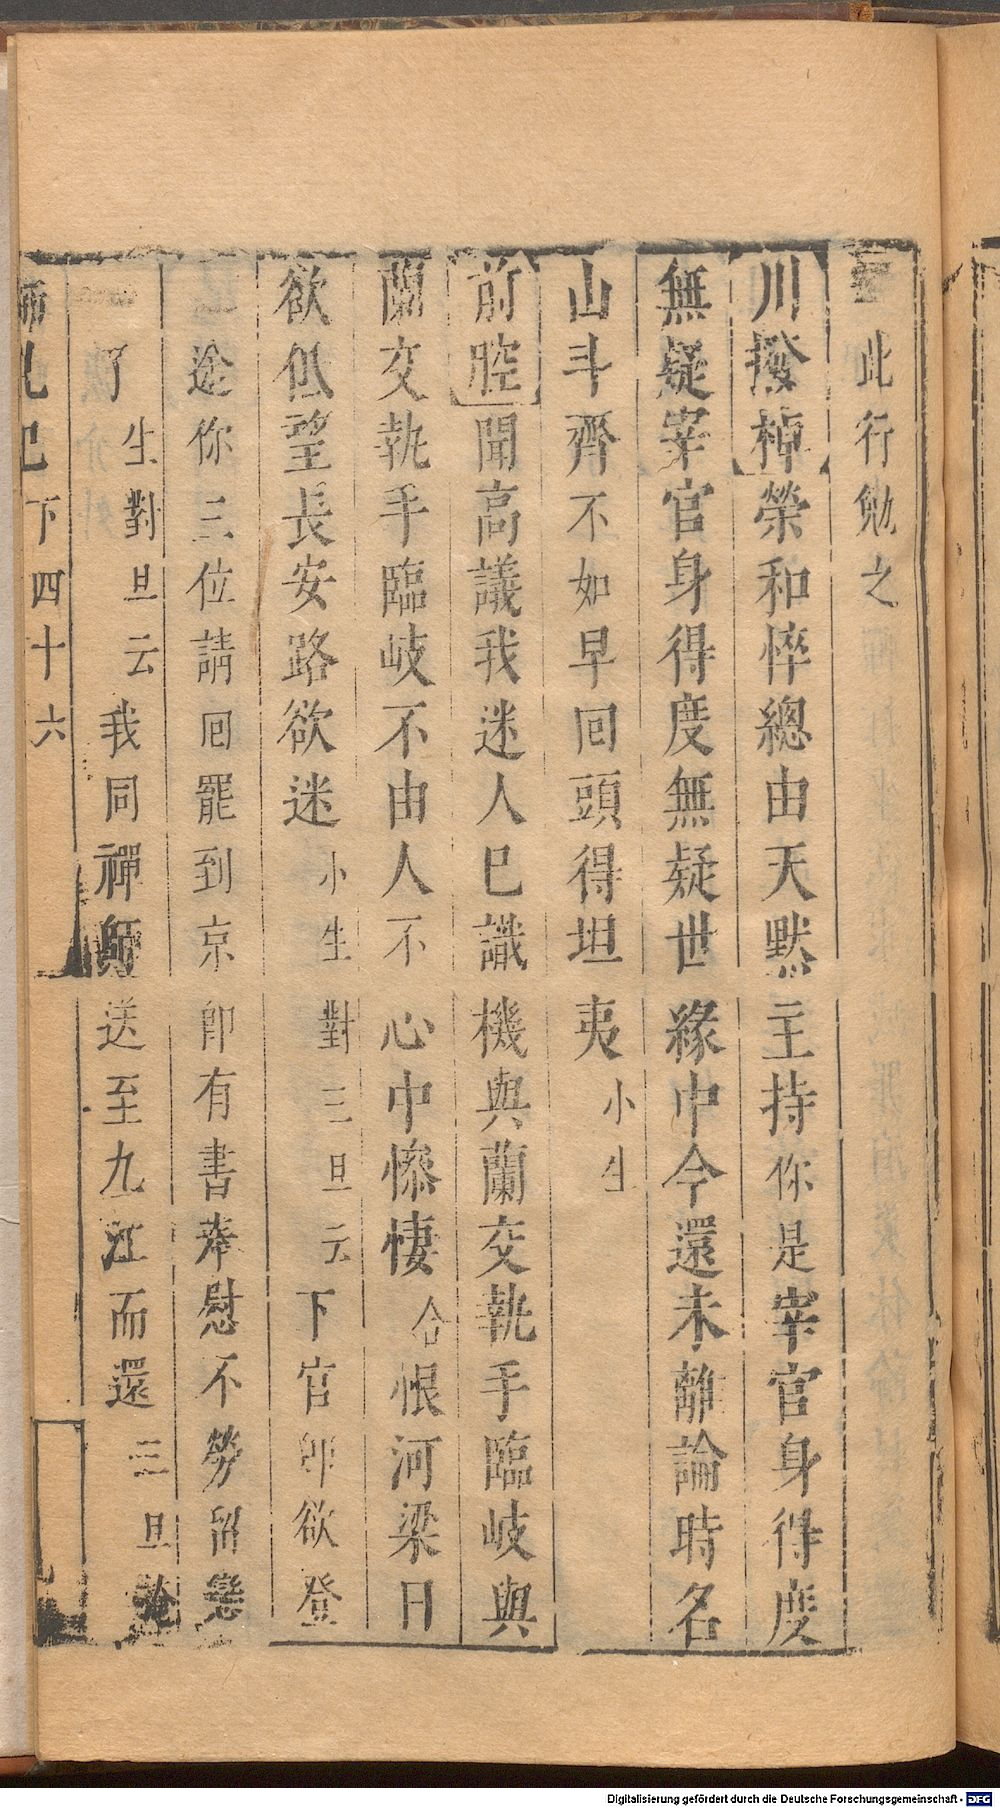 此行勉之
川撥棹榮和悴總由天默主持你是宰官身得度
無疑宰官身得度無疑世緣中今還未離論時名
山斗齊不如早回頭得坦夷小生
前腔聞高議我迷人已識機與蘭交執手臨岐與
蘭交執手臨岐不由人不心中慘悽合恨河梁日
欲低望長安路欲迷小生對三旦云下官即欲登
途你三位請回罷到京即有書奉慰不勞留戀
了生對旦云我同禪師送至九江而還三旦
下四十六
Digitalisierung gefördert durch die Deutsche Forschungsgemeinschaft - DFG